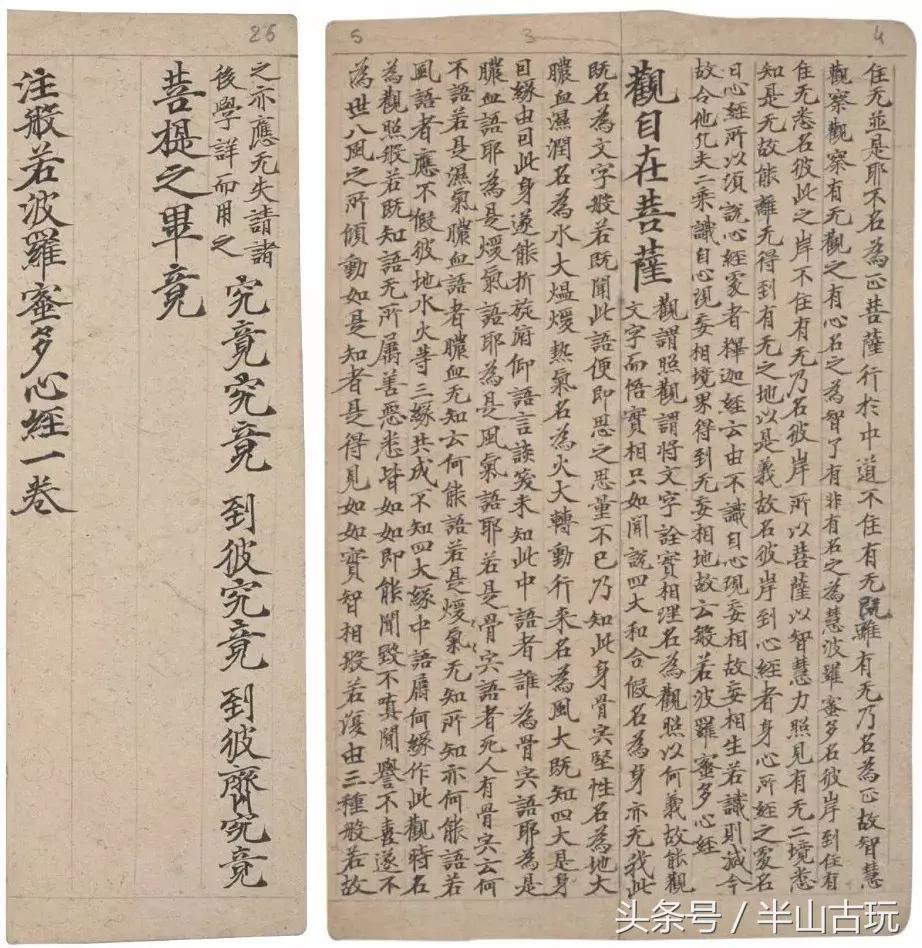 4
3
5
住无並是耶不名為正菩薩行於中道不住有无既離有无乃名為正故智慧
觀察觀察有无觀之有心名之為智了有非有名之為慧波羅蜜多名彼岸到住有
住无悉名彼此之岸不住有无乃名彼岸所以菩薩以智慧力照見有无二境悉
知是无故能離无得到有无之地以是義故名彼岸到心經者身心所經之處名
曰心經所以須說心經家者釋迦經云由不識自心現妄相故妄相生若識則滅今
故合他凡夫二乘識自心現妄相境界得到无妄相地故云般若波羅蜜多心經
觀自在菩薩
觀謂照觀謂將文字詮實相理名為觀照以何義故能觀
文字而悟實相只如聞說四大和合假名為身亦无我此
既名為文字般若既聞此語便即思之思量不已乃知此身骨宍堅性名為地大
膿血濕潤名為水大煴煖熱氣名為火大轉動行来名為風大既知四大是身
因緣由曰此身遂能折旋府仰語言談笑未知此中語者誰為骨宍語耶為是
膿血語耶為是煖氣語耶為是風氣語耶若是骨宍語者死人有骨宍云何
不語若是濕氣膿血語者膿血无知云何能語若是煖氣无知所知亦何能語若
風語者應不假彼地水火等三緣共成不知四大緣中語屬何緣作此觀時名
為觀照般若既知語无所屬善惡悉皆如如即能聞毀不嗔聞譽不喜遂不
為世八風之所傾動如是知者是得見如如實智相般若復由三種般若故
26
之亦應无失請諸
後學詳而用之
究竟究竟 到彼究竟 到彼齊究竟
菩提之畢竟
注般若波羅蜜多心經一卷
头条号/半山古玩